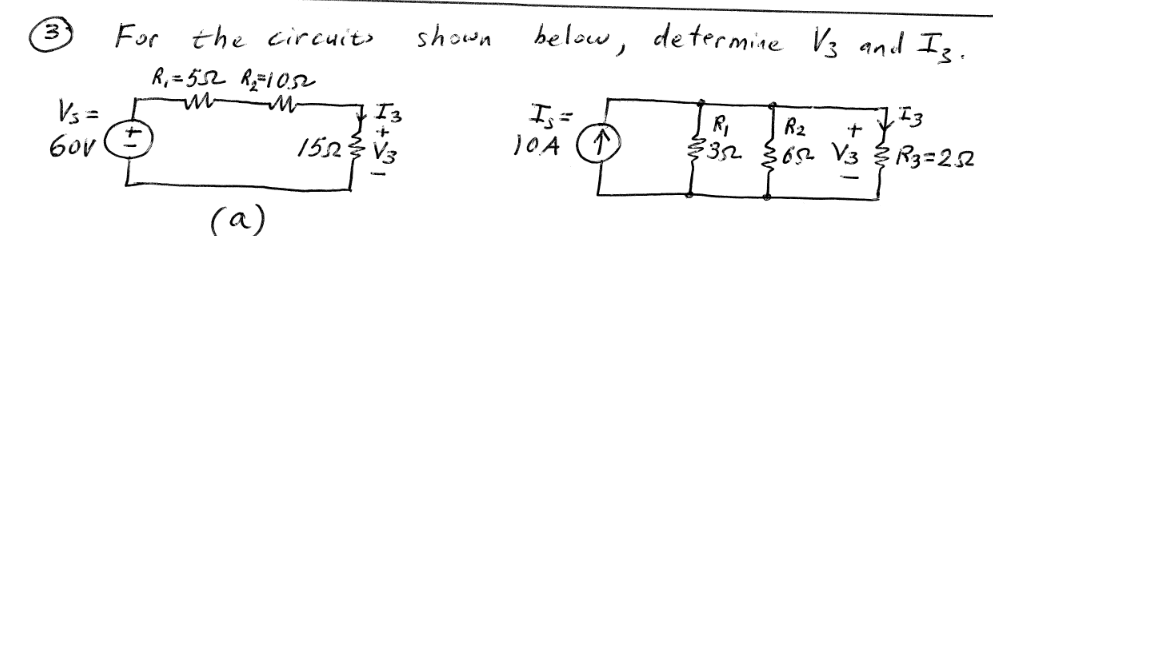 ③ For the circuits shown below, determine V₃ and I₃.
R₁=5Ω R₂=10Ω
Vs=
60V
+
−
I₃
+
15Ω V₃
−
(a)
Is=
10A
R₁
3Ω
R₂
6Ω
I₃
+
V₃ R₃=2Ω
−